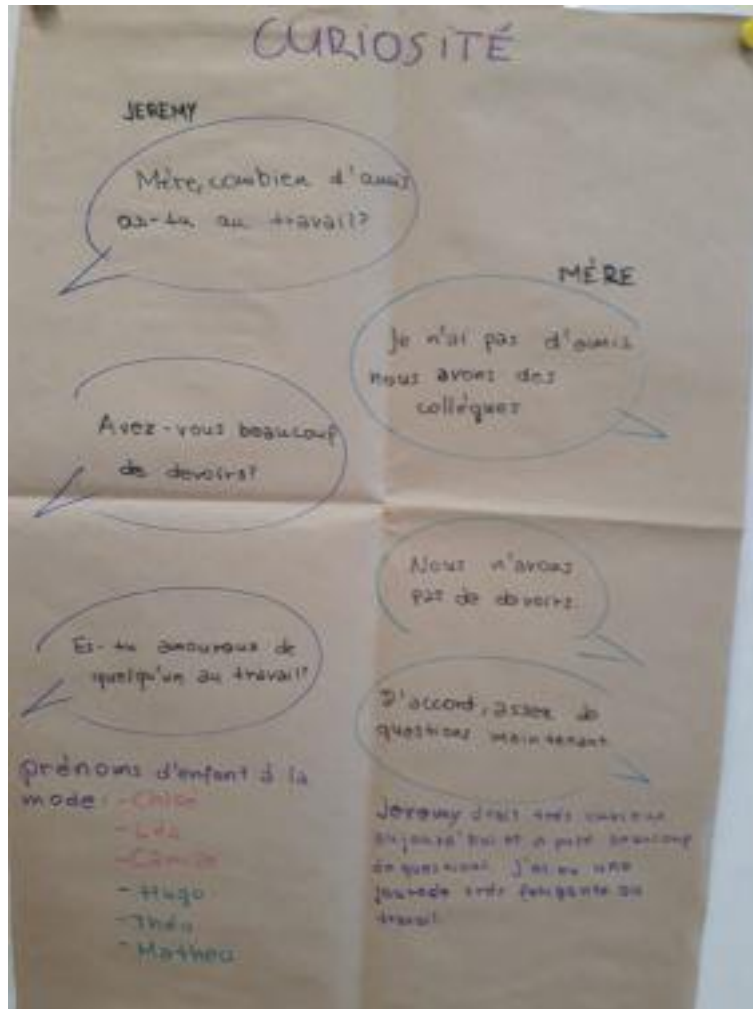 CURIOSITÉ
JEREMY
Mère, combien d'amis
as-tu au travail?
MÈRE
Je n'ai pas d'amis
nous avons des
collègues
Avez-vous beaucoup
de devoirs?
Nous n'avons
pas de devoirs.
Es-tu amoureux de
quelqu'un au travail?
D'accord, assez de
questions maintenant
prénoms d'enfant à la
mode: -Chloé
-Léa
-Camille
-Hugo
-Théo
-Matheo
Jeremy était très curieux
aujourd'hui et a posé beaucoup
de questions. J'ai eu une
journée très fatigante au
travail